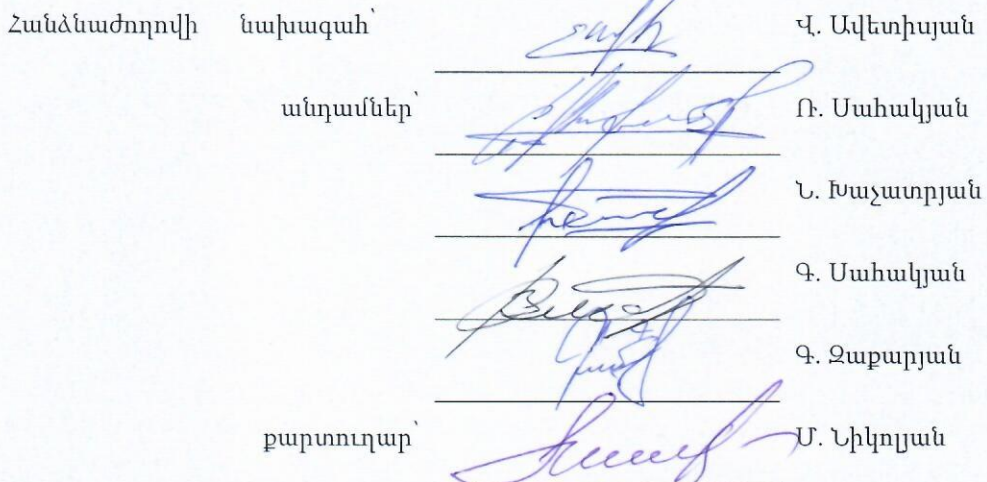 Հանձնաժողովի նախագահ՝ Վ. Ավետիսյան
անդամներ՝ Ռ. Սահակյան
Ն. Խաչատրյան
Գ. Սահակյան
Գ. Զաքարյան
քարտուղար՝ Մ. Նիկոլյան